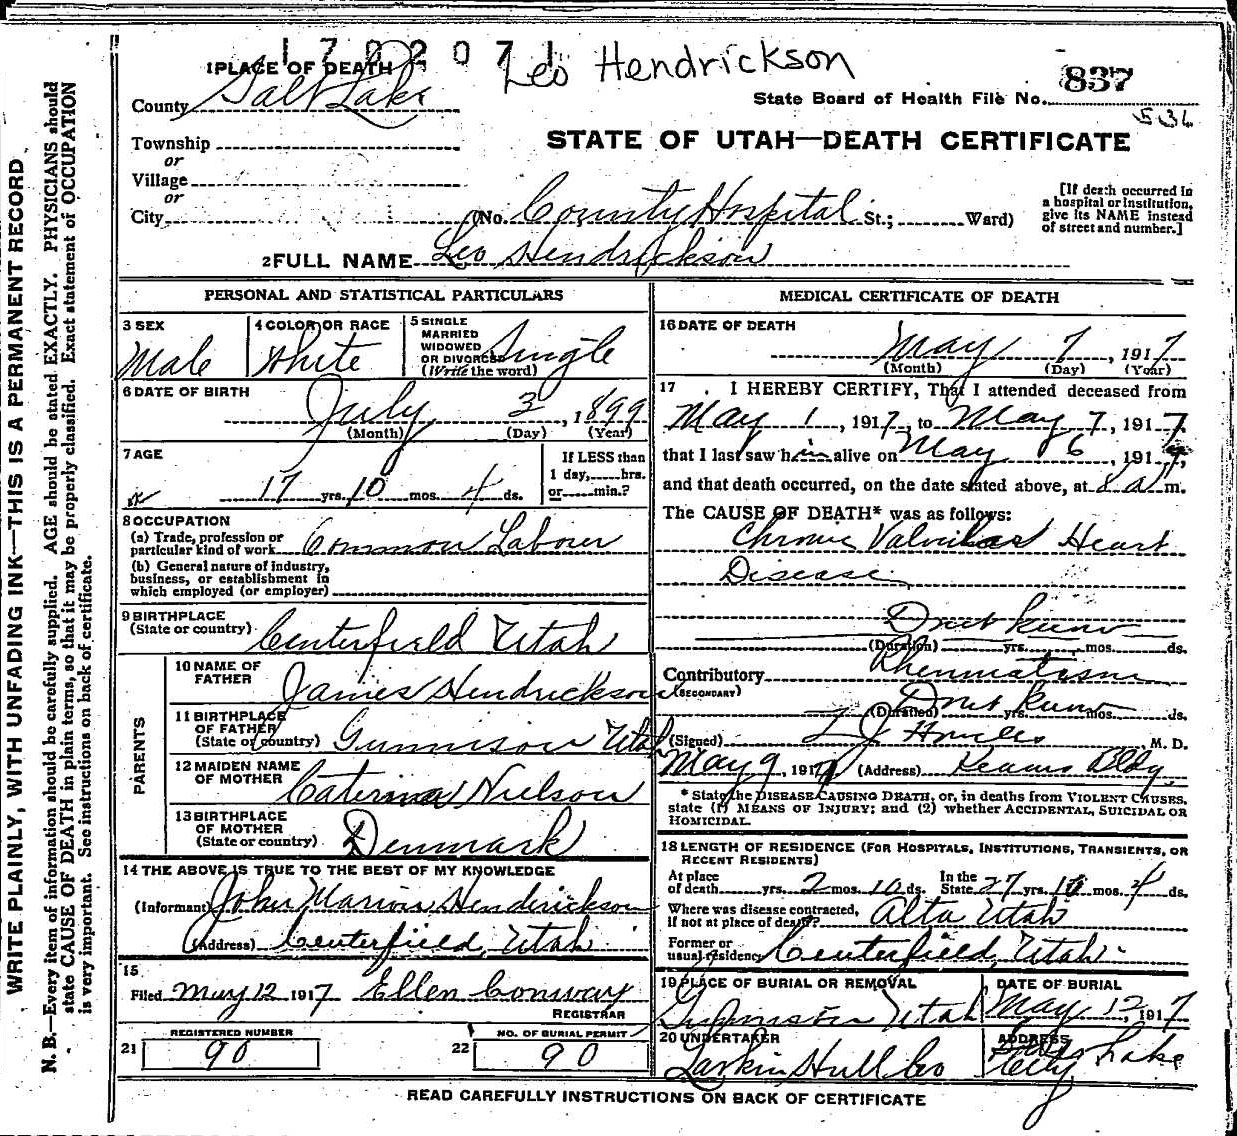 1702071
Leo Hendrickson
1 PLACE OF DEATH
837
County Salt Lake
State Board of Health File No.
536
Township
STATE OF UTAH—DEATH CERTIFICATE
or
Village
or
City (No. County Hospital St.; Ward)
[If death occurred in a hospital or institution, give its NAME instead of street and number.]
2 FULL NAME Leo Hendrickson
PERSONAL AND STATISTICAL PARTICULARS
3 SEX Male
4 COLOR OR RACE White
5 SINGLE MARRIED WIDOWED OR DIVORCED (Write the word) Single
6 DATE OF BIRTH
July 3, 1899
(Month) (Day) (Year)
7 AGE
17 yrs. 10 mos. 4 ds.
If LESS than 1 day, hrs. or min.?
8 OCCUPATION
(a) Trade, profession or particular kind of work Common Labour
(b) General nature of industry, business, or establishment in which employed (or employer)
9 BIRTHPLACE
(State or country) Centerfield Utah
PARENTS
10 NAME OF FATHER James Hendrickson
11 BIRTHPLACE OF FATHER (State or country) Gunnison Utah
12 MAIDEN NAME OF MOTHER Caterina Nielson
13 BIRTHPLACE OF MOTHER (State or country) Denmark
14 THE ABOVE IS TRUE TO THE BEST OF MY KNOWLEDGE
(Informant) John Marion Hendrickson
(Address) Centerfield, Utah
15
Filed May 12 1917 Ellen Conway
REGISTRAR
REGISTERED NUMBER
21 90
NO. OF BURIAL PERMIT
22 90
MEDICAL CERTIFICATE OF DEATH
16 DATE OF DEATH
May 7, 1917
(Month) (Day) (Year)
17 I HEREBY CERTIFY, That I attended deceased from
May 1, 1917, to May 7, 1917,
that I last saw him alive on May 6, 1917,
and that death occurred, on the date stated above, at 8 a m.
The CAUSE OF DEATH* was as follows:
Chronic Valvular Heart
Disease
Dont know
(Duration) yrs. mos. ds.
Contributory Rheumatism
(SECONDARY)
Dont know
(Duration) yrs. mos. ds.
(Signed) M. D.
May 9, 1917 (Address) Kearns Bldg
* State the DISEASE CAUSING DEATH, or, in deaths from VIOLENT CAUSES,
state (1) MEANS OF INJURY; and (2) whether ACCIDENTAL, SUICIDAL OR
HOMICIDAL.
18 LENGTH OF RESIDENCE (FOR HOSPITALS, INSTITUTIONS, TRANSIENTS, OR
RECENT RESIDENTS)
At place of death yrs. 2 mos. 10 ds. In the State 27 yrs. 10 mos. 4 ds.
Where was disease contracted, if not at place of death? Alta Utah
Former or usual residence Centerfield, Utah
19 PLACE OF BURIAL OR REMOVAL
Gunnison Utah
DATE OF BURIAL
May 12, 1917
20 UNDERTAKER
Larkin Hull Co
ADDRESS
Salt Lake
City
READ CAREFULLY INSTRUCTIONS ON BACK OF CERTIFICATE
WRITE PLAINLY, WITH UNFADING INK—THIS IS A PERMANENT RECORD
N. B.—Every item of information should be carefully supplied. AGE should be stated EXACTLY. PHYSICIANS should
state CAUSE OF DEATH in plain terms, so that it may be properly classified. Exact statement of OCCUPATION
is very important. See instructions on back of certificate.